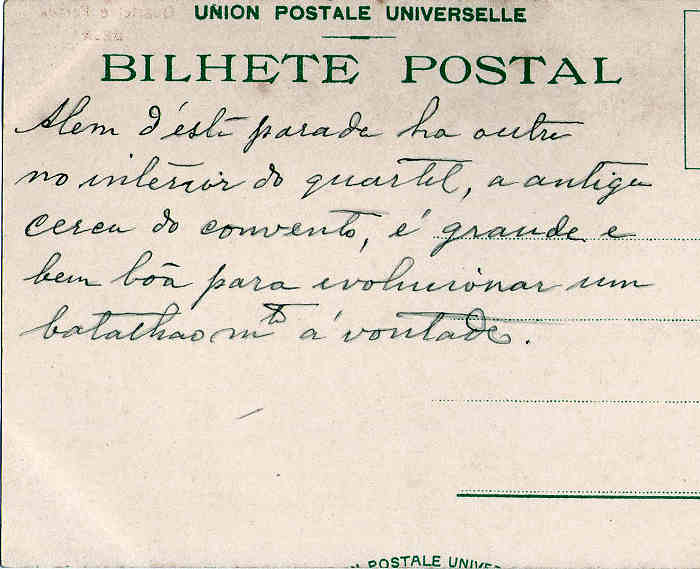 UNION POSTALE UNIVERSELLE
BILHETE POSTAL
Alem d'ésta parada ha outra
no interior do quartel, a antiga
cerca do convento, é grande e
bem bôa para evolucionar um
batalhao mto á vontade.
N POSTALE UNIVE